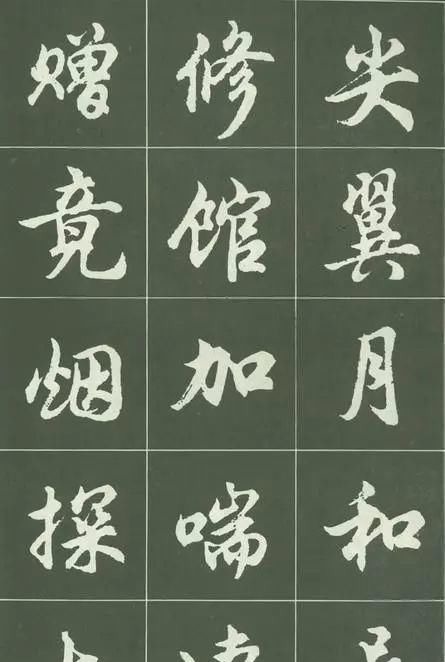 尖翼月和
修馆加喘
赠竟烟探